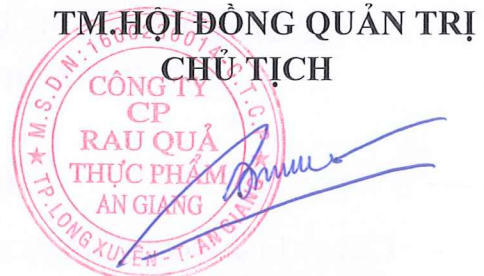 TM.HỘI ĐỒNG QUẢN TRỊ
CHỦ TỊCH
CÔNG TY
CP
RAU QUẢ
THỰC PHẨM
AN GIANG
TP.LONG XUYÊN - T. AN GIANG